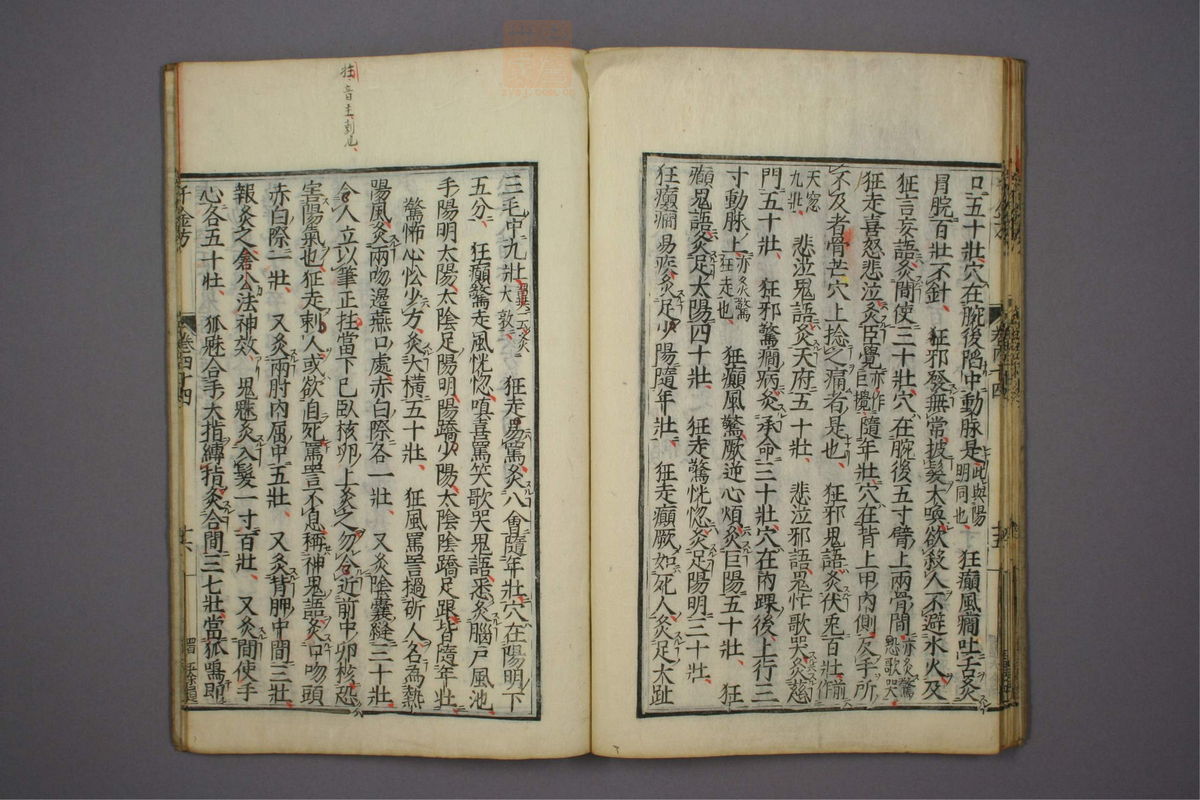 口五十壯穴在腕後陷中動脉是此與陽明同也 狂癲風癇吐舌灸
胃脘百壯不針 狂邪發無常披髮大喚欲殺人不避水火及
狂言妄語灸間使三十壯穴在腕後五寸臂上兩骨間亦灸驚恐歌哭
狂走喜怒悲泣灸臣覺亦作巨攪隨年壯穴在背上甲內側反手所
不及者骨芒穴上捻之痛者是也 狂邪鬼語灸伏兎百壯前作
天窓九壯 悲泣鬼語灸天府五十壯 悲泣邪語鬼忙歌哭灸慈
門五十壯 狂邪驚癇病灸承命三十壯穴在內踝後上行三
寸動脉上亦灸驚狂走也 狂癲風驚厥逆心煩灸巨陽五十壯 狂
癲鬼語灸足太陽四十壯 狂走驚恍惚灸足陽明三十壯
狂癲癇易疾灸足少陽隨年壯 狂走癲厥如死人灸足大趾
三毛中九壯翼云灸大敦 狂走易罵灸八會隨年壯穴在陽明下
五分 狂癲驚走風恍惚嗔喜罵笑歌哭鬼語悉灸腦戶風池
手陽明太陽太陰足陽明陽蹻少陽太陰陰蹻足跟皆隨年壯
驚怖心忪少方灸大橫五十壯 狂風罵詈撾斫人名為熱
陽風灸兩吻邊燕口處赤白際各一壯 又灸陰囊縫三十壯
令人立以筆正拄當下已臥核卵上灸之勿令近前中卵核恐
害陽氣也 狂走刺人或欲自死罵詈不息稱神鬼語灸口吻頭
赤白際一壯 又灸兩肘內屈中五壯 又灸背胛中間三壯
報灸之倉公法神效 鬼魅灸入髮一寸百壯 又灸間使手
心各五十壯 狐魅合手大指縛指灸合間三七壯當狐鳴即
千金方
卷四十四
十六
拄音主刺也